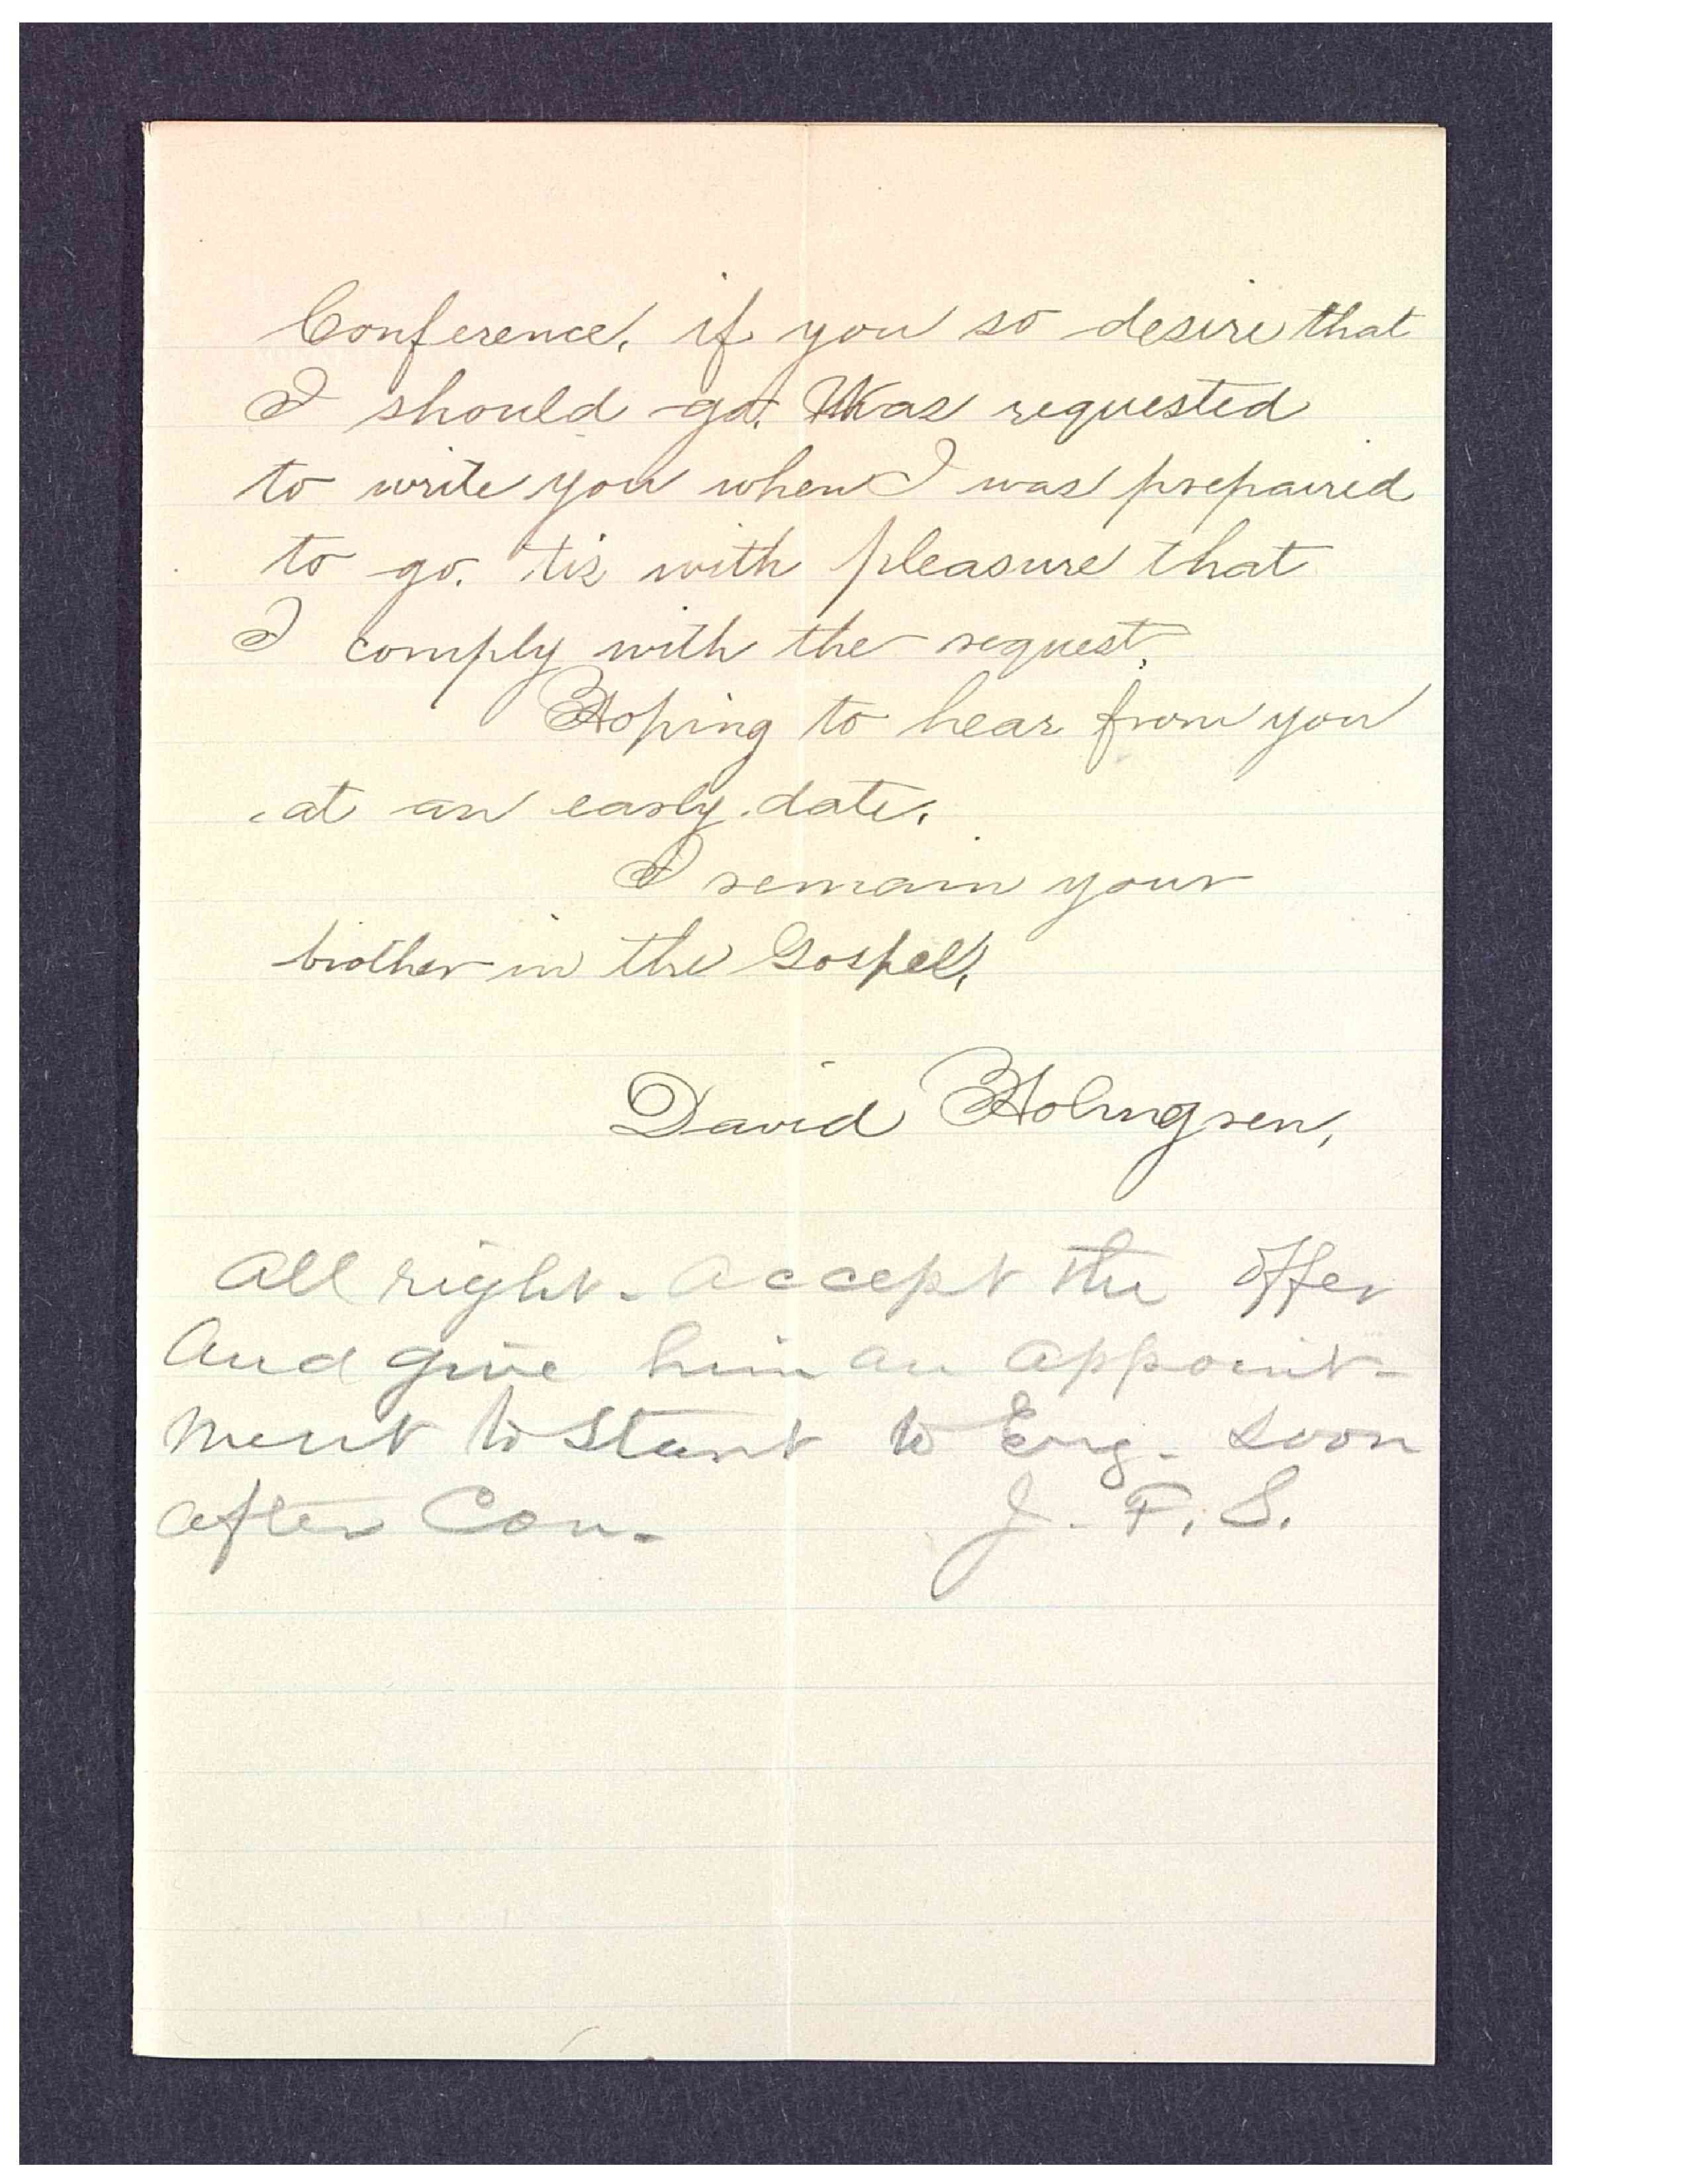 Conference, if you so desire that
I should go. Was requested
to write you when I was prepaired
to go. 'tis with pleasure that
I comply with the request.
Hoping to hear from you
at an early date,
I remain your
brother in the Gospel,
David Holmgren,
All right. Accept the offer
And give him an appoint-
ment to Start to Eng. soon
after Con.
J. F. S.